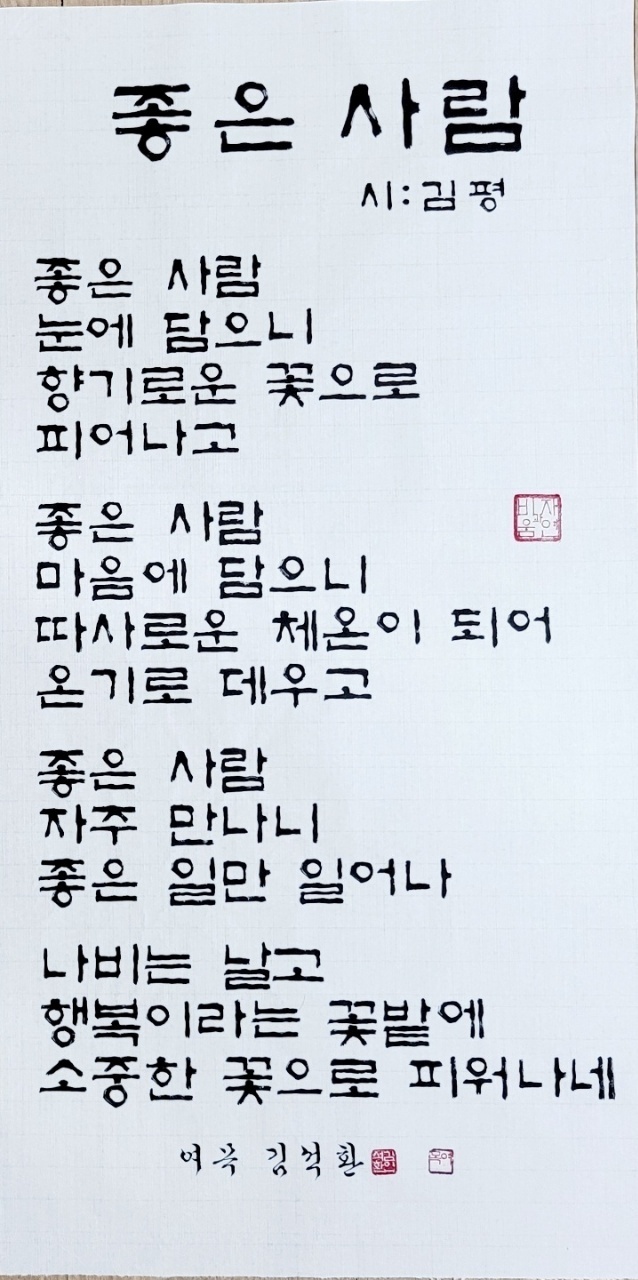 좋은 사람
시:김평
좋은 사람
눈에 담으니
향기로운 꽃으로
피어나고
좋은 사람
마음에 담으니
따사로운 체온이 되어
온기로 데우고
좋은 사람
자주 만나니
좋은 일만 일어나
나비는 날고
행복이라는 꽃밭에
소중한 꽃으로 피워나네
김석환